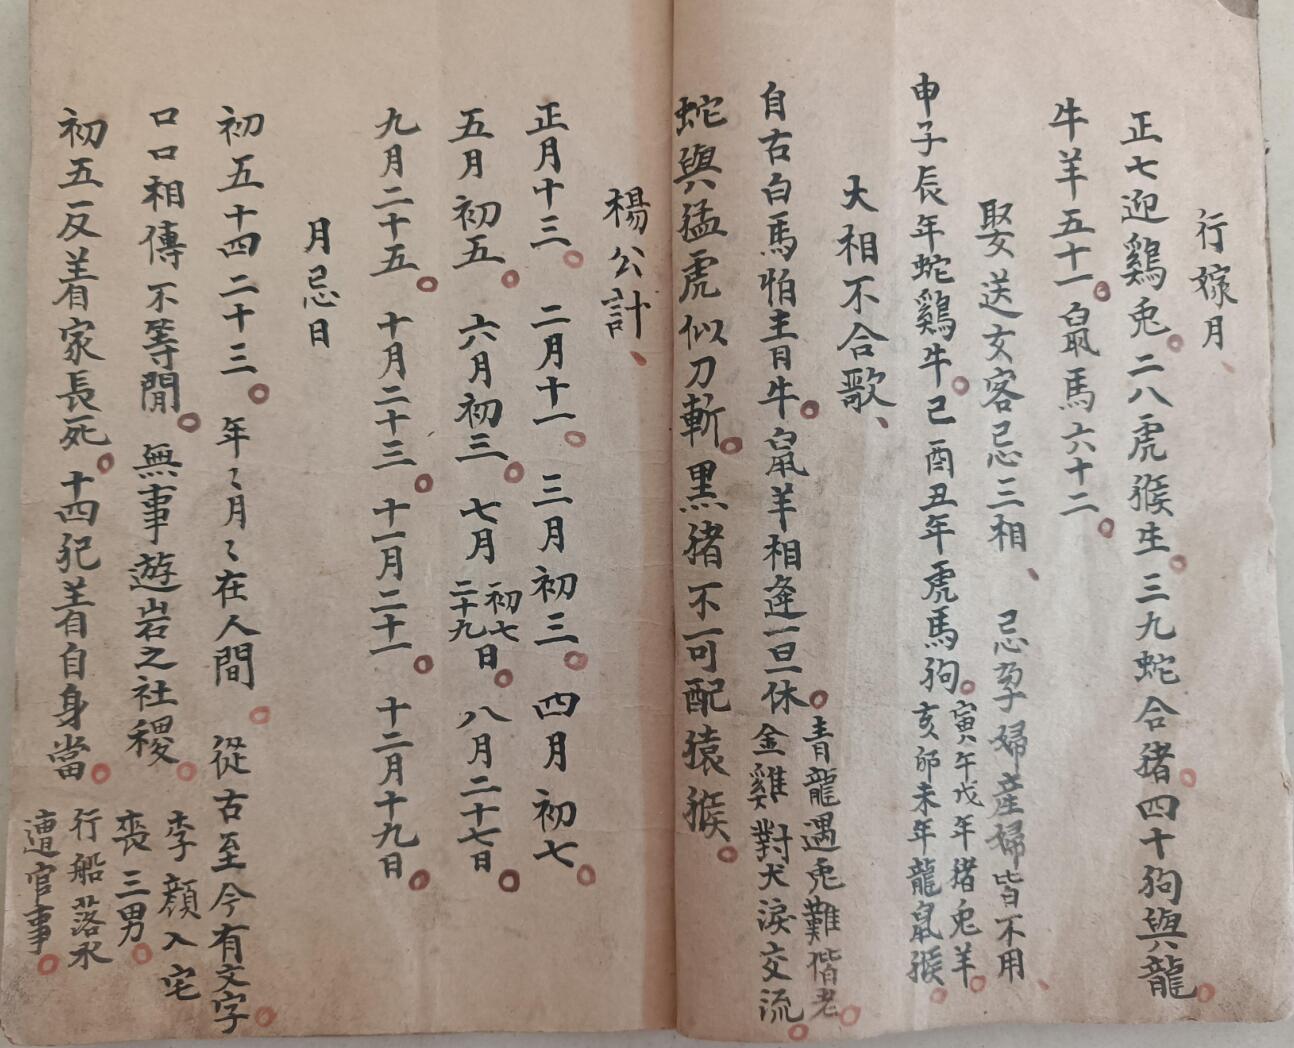 行嫁月、
正七迎鷄兎。二八虎猴生。三九蛇合猪。四十狗與龍。
牛羊五十一。鼠馬六十二。
娶送女客忌三相、忌孕婦產婦皆不用、
申子辰年蛇鷄牛。己酉丑年虎馬狗。寅午戊年猪兎羊。
亥卯未年龍鼠猴。
大相不合歌、
自古白馬怕青牛。鼠羊相逢一旦休。青龍遇兎難偕老。
金雞對犬淚交流。
蛇與猛虎似刀斬。黑猪不可配猿猴。
楊公計、
正月十三。二月十一。三月初三。四月初七。
五月初五。六月初三。七月初一初七二十九日。八月二十七日。
九月二十五。十月二十三。十一月二十一。十二月十九日。
月忌日
初五十四二十三。年〻月〻在人間。從古至今有文字。
口口相傳不等閒。無事遊岩之社稷。李顔入宅
喪三男。
初五反著家長死。十四犯著自身當。行船落水
遭官事。